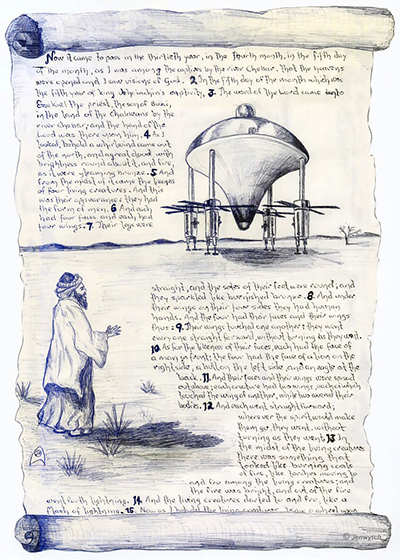 Now it came to pass in the thirtieth year, in the fourth month, in the fifth day
of the month, as I was among the captives by the river Chebar, that the heavens
were opened and I saw visions of God. 2. In the fifth day of the month which was
the fifth year of king Jehoiachin's captivity, 3. The word of the Lord came unto
Ezekiel the priest, the son of Buzi,
in the land of the Chaldeans by the
river Chebar; and the hand of the
Lord was there upon him. 4. As I
looked, behold a whirlwind came out
of the north, and a great cloud with
brightness round about it, and fire,
as it were gleaming bronze. 5. And
from the midst of it came the likeness
of four living creatures. And this
was their appearance: they had
the form of men. 6. And each
had four faces and each had
four wings. 7. Their legs were
straight, and the soles of their feet were round; and
they sparkled like burnished bronze. 8. And under
their wings on their four sides they had human
hands. And the four had their faces and their wings
thus: 9. Their wings touched one another; they went
every one straight forward, without turning as they went.
10. As for the likeness of their faces, each had the face of
a man in front; the four had the face of a lion on the
right side, a bull on the left side, and an eagle at the
back. 11. And their faces and their wings were spread
out above; each creature had two wings, each of which
touched the wing of another, while two covered their
bodies. 12. And each went straight forward;
wherever the spirit would make
them go, they went, without
turning as they went. 13. In
the midst of the living creatures
there was something that
looked like burning coals
of fire, like torches moving to
and fro among the living creatures; and
the fire was bright, and out of the fire
went forth lightning. 14. And the living creatures darted to and fro, like a
flash of lightning. 15. Now as I beheld the living creatures, I saw a wheel upon
© Jenwytch